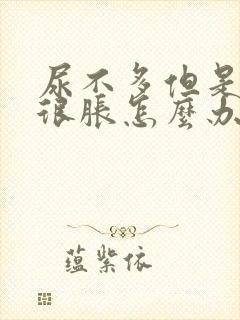 尿不多但是
很脹怎麼办
蕴紫依